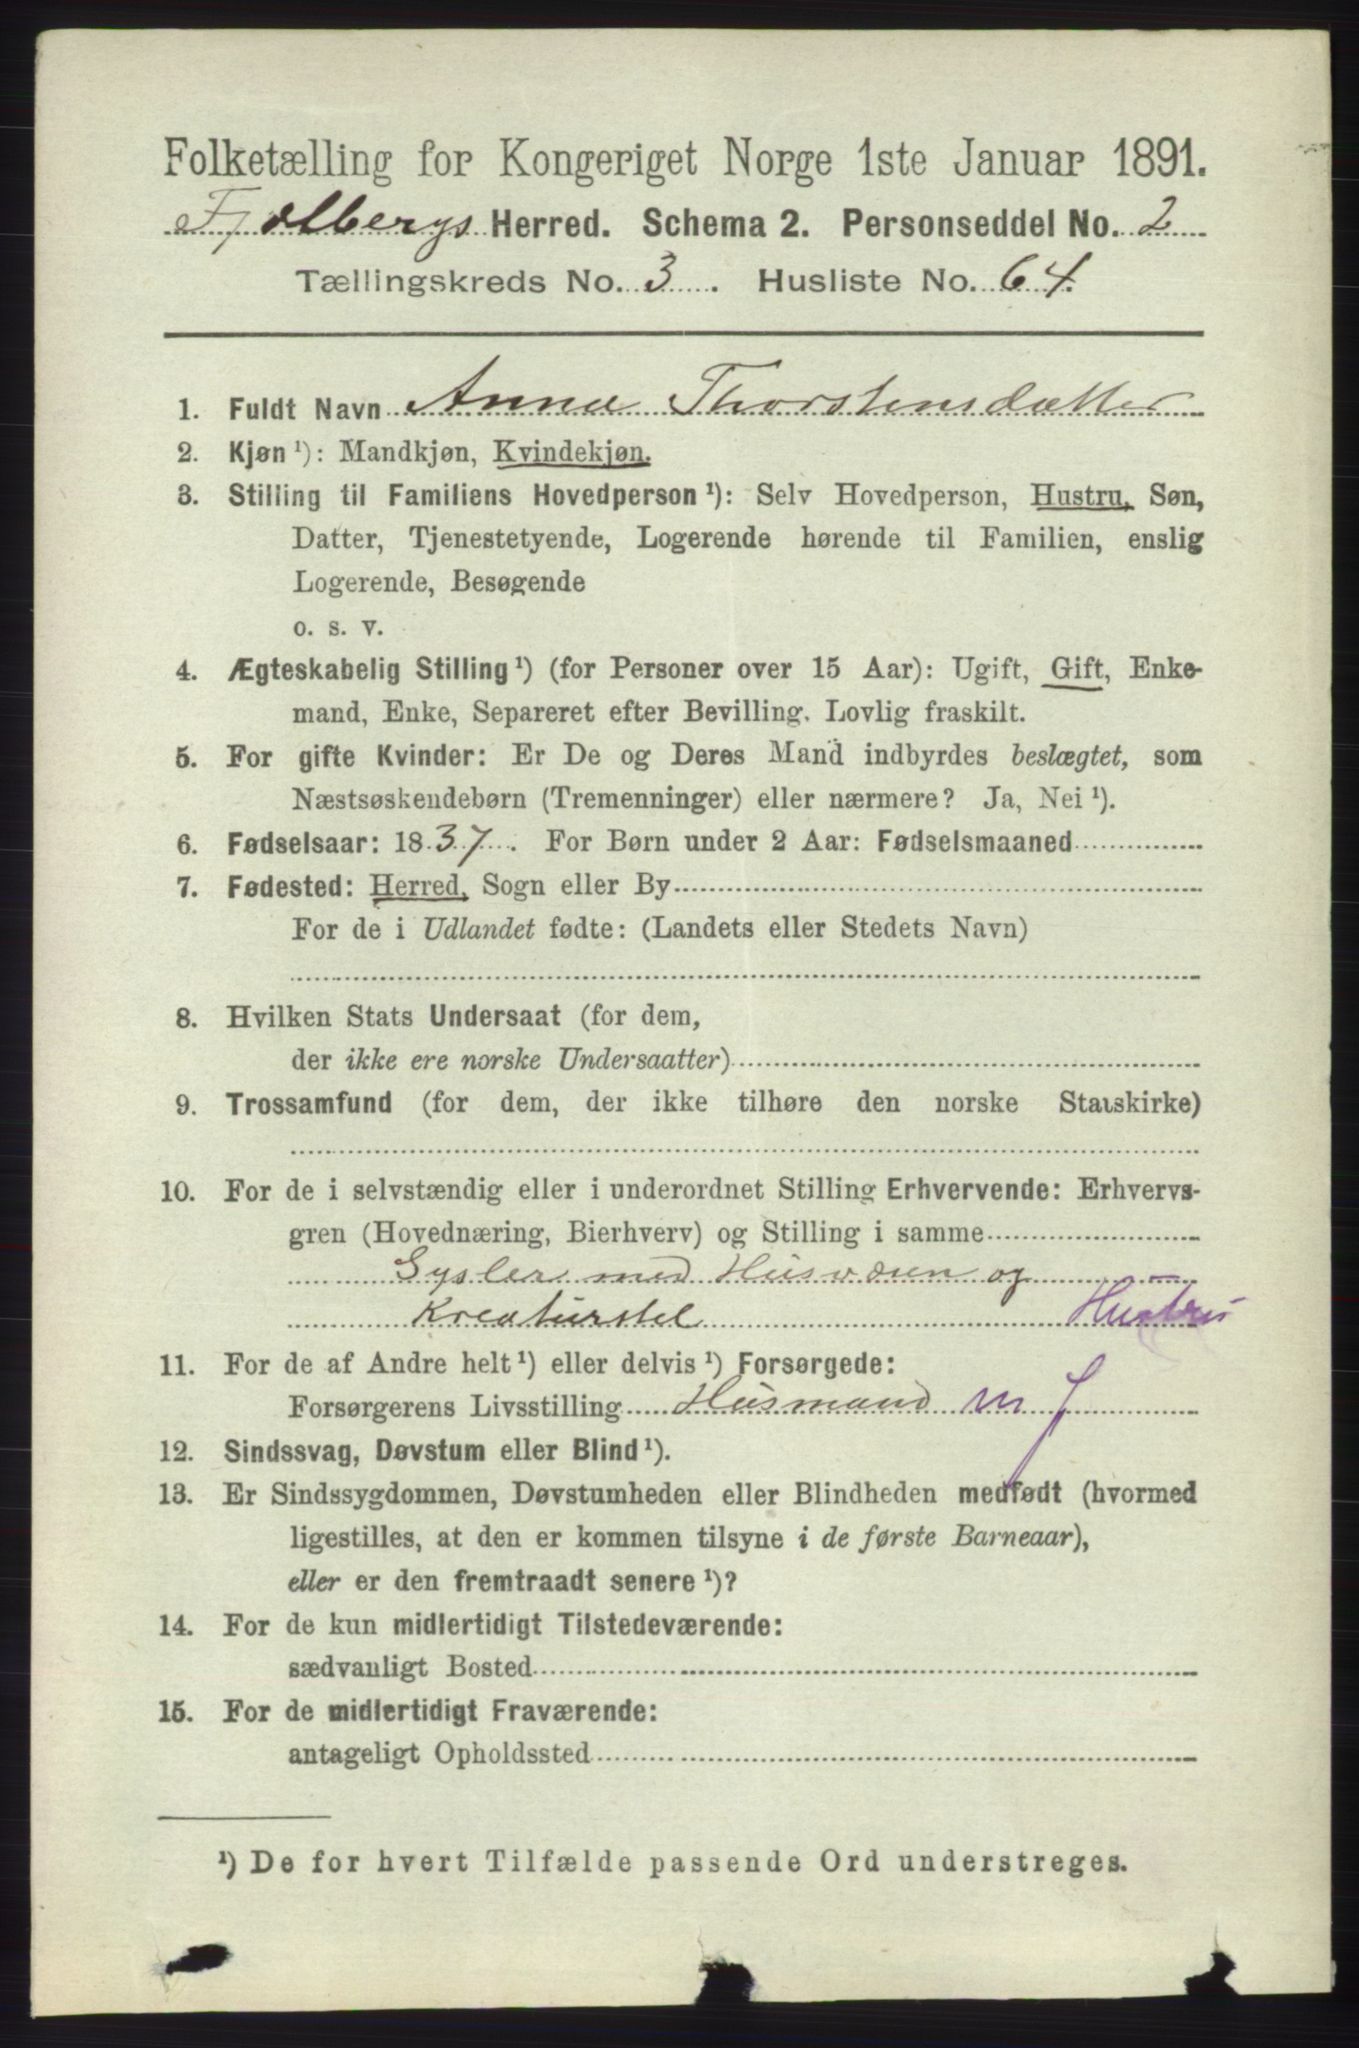 Folketælling for Kongeriget Norge 1ste Januar 1891.
Fjælbergs Herred. Schema 2. Personseddel No. 2
Tællingskreds No. 3. Husliste No. 64.
1. Fuldt Navn Anna Thorstensdatter
2. Kjøn¹): Mandkjøn, Kvindekjøn.
3. Stilling til Familiens Hovedperson¹): Selv Hovedperson, Hustru, Søn,
Datter, Tjenestetyende, Logerende hørende til Familien, enslig
Logerende, Besøgende
o. s. v.
4. Ægteskabelig Stilling¹) (for Personer over 15 Aar): Ugift, Gift, Enke-
mand, Enke, Separeret efter Bevilling. Lovlig fraskilt.
5. For gifte Kvinder: Er De og Deres Mand indbyrdes beslægtet, som
Næstsøskendebørn (Tremenninger) eller nærmere? Ja, Nei¹).
6. Fødselsaar: 1837. For Børn under 2 Aar: Fødselsmaaned
7. Fødested: Herred, Sogn eller By
For de i Udlandet fødte: (Landets eller Stedets Navn)
8. Hvilken Stats Undersaat (for dem,
der ikke ere norske Undersaatter)
9. Trossamfund (for dem, der ikke tilhøre den norske Statskirke)
10. For de i selvstændig eller i underordnet Stilling Erhvervende: Erhvervs-
gren (Hovednæring, Bierhverv) og Stilling i samme
Sysler med Husvæsen og
Kreaturstel Hustru
11. For de af Andre helt¹) eller delvis¹) Forsørgede:
Forsørgerens Livsstilling Husmand m J
12. Sindssvag, Døvstum eller Blind¹).
13. Er Sindssygdommen, Døvstumheden eller Blindheden medfødt (hvormed
ligestilles, at den er kommen tilsyne i de første Barneaar),
eller er den fremtraadt senere¹)?
14. For de kun midlertidigt Tilstedeværende:
sædvanligt Bosted
15. For de midlertidigt Fraværende:
antageligt Opholdssted
¹) De for hvert Tilfælde passende Ord understreges.